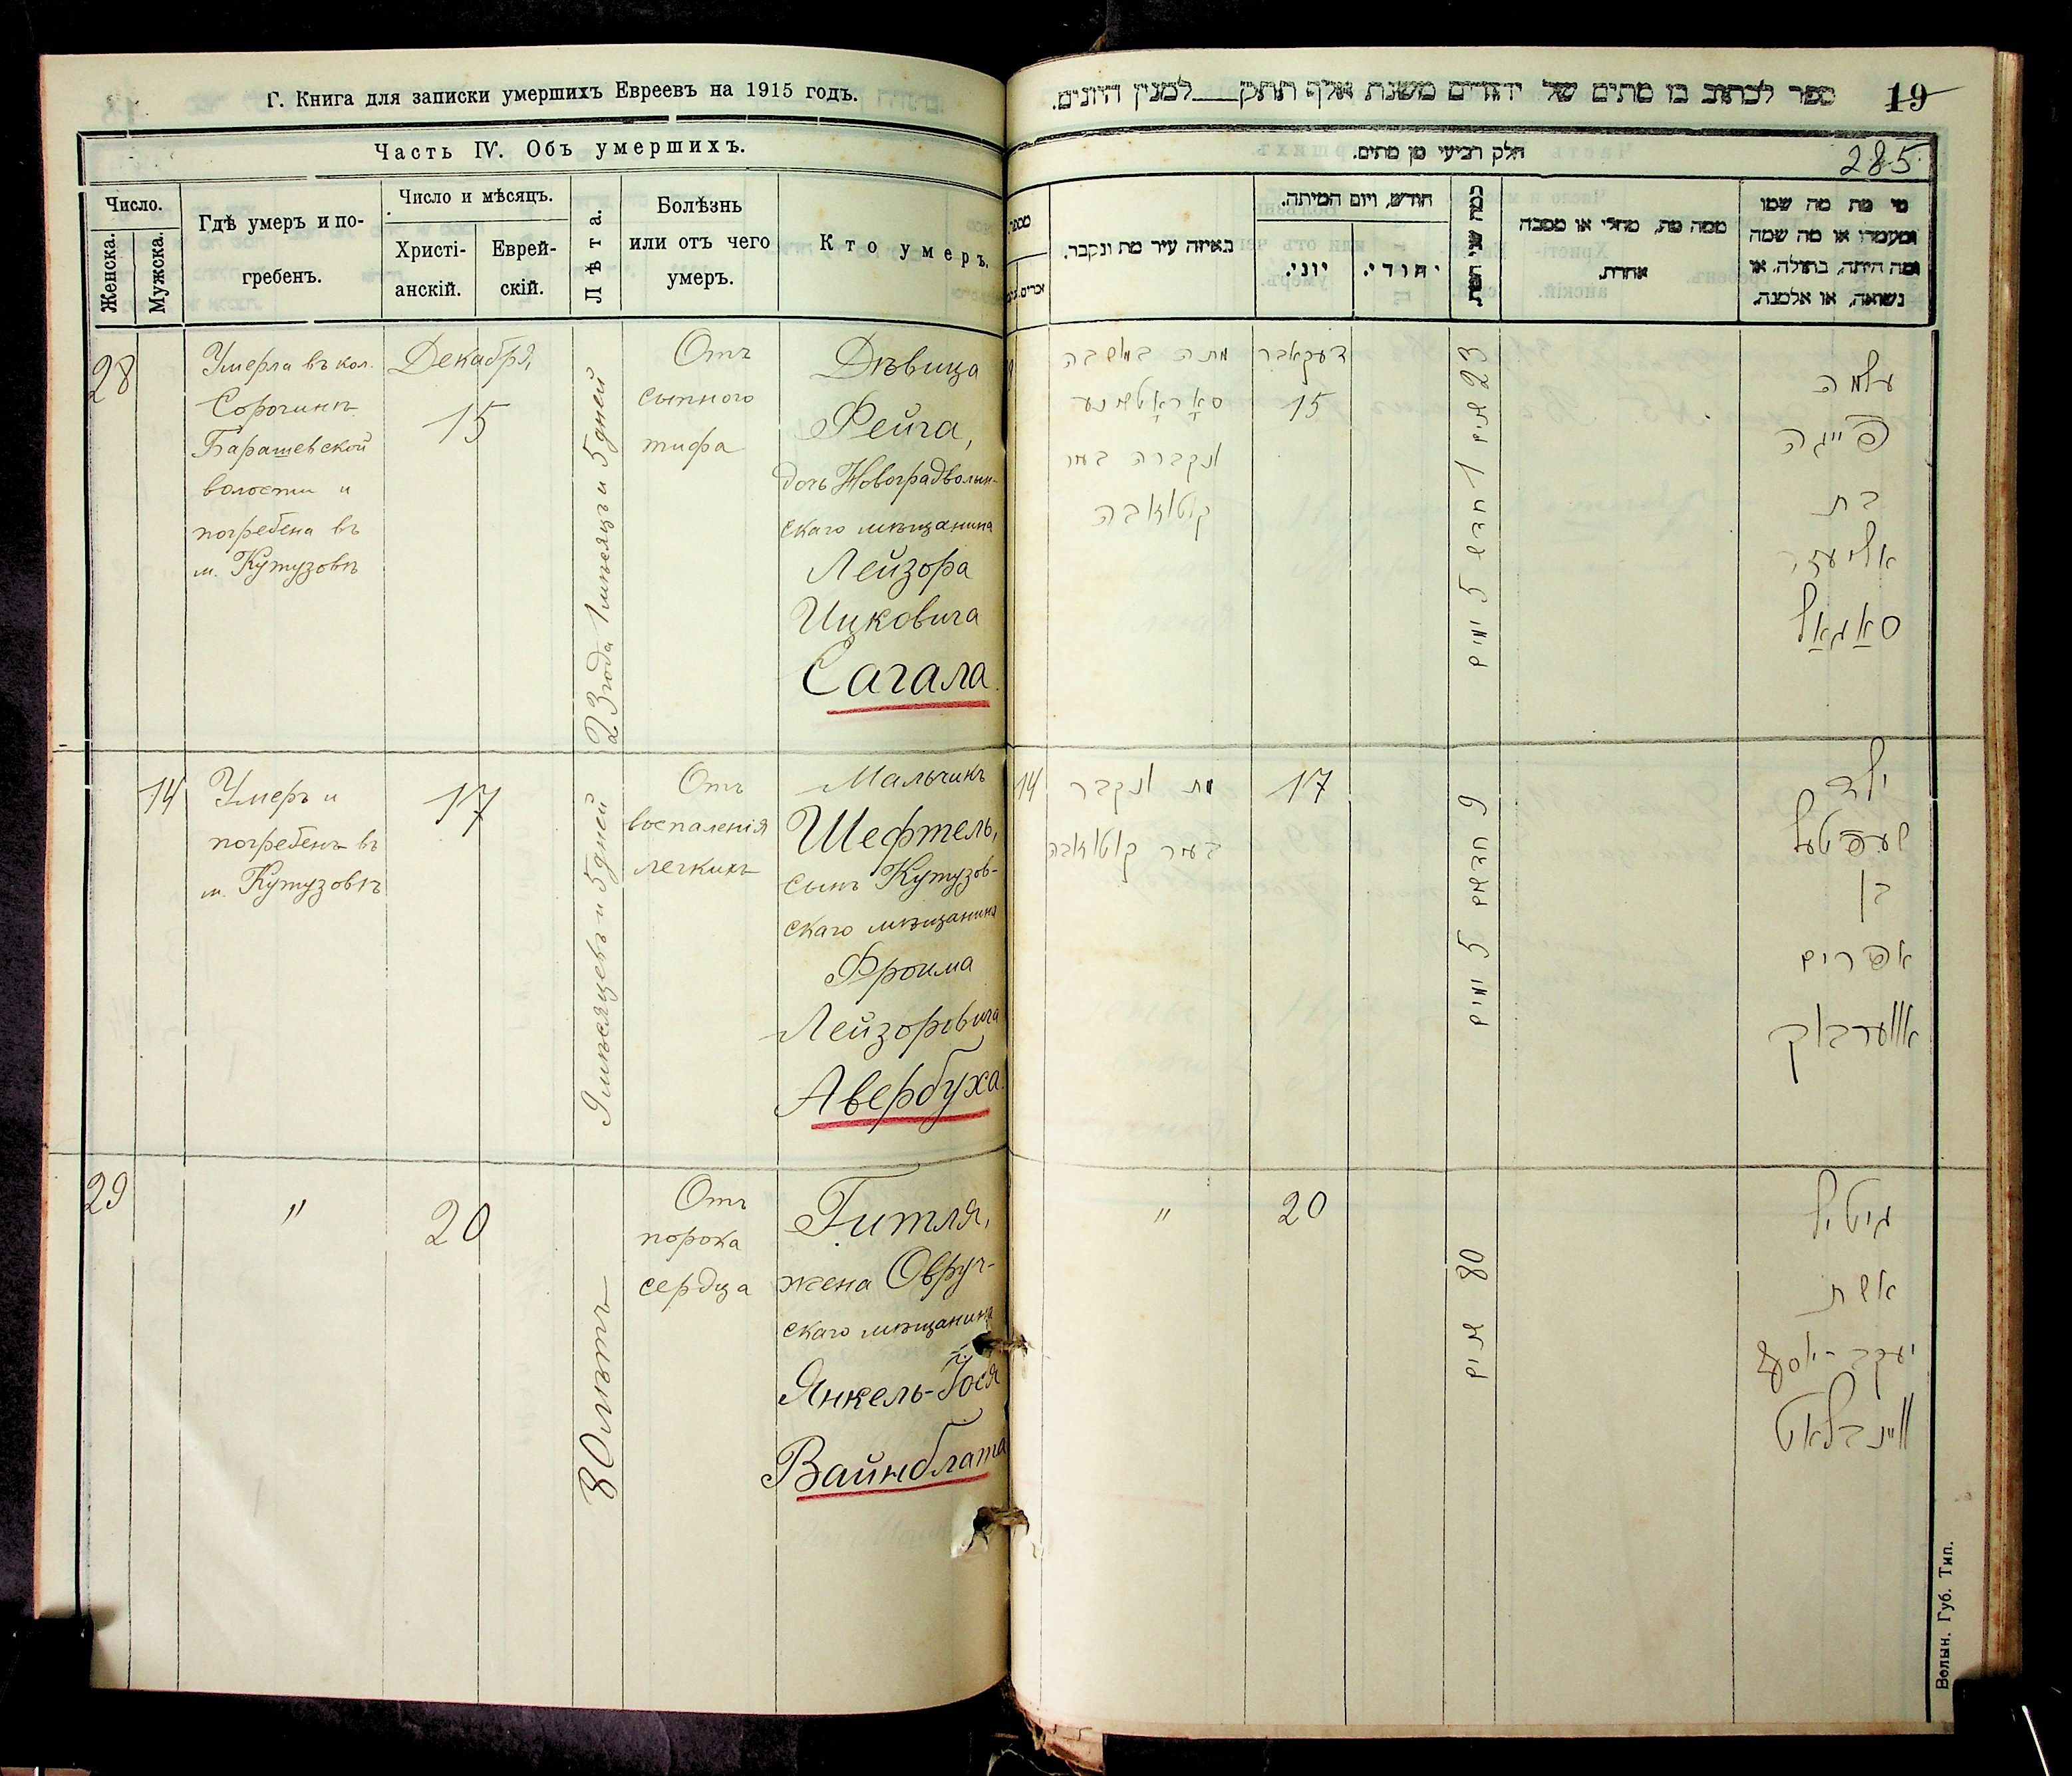 Г. Книга для записки умершихъ Евреевъ на 1915 годъ.
Часть IV. Объ умершихъ.
Число.
Женска.
Мужска.
Гдѣ умеръ и по-
гребенъ.
Число и мѣсяцъ.
Христі-
анскій.
Еврей-
скій.
Лѣта.
Болѣзнь
или отъ чего
умеръ.
Кто умеръ.
28
Умерла въ кол.
Сорочинѣ
Барашевской
волости и
погребена въ
м. Кутузовѣ
Декабря
15
23 года 1 мѣсяцъ и 5 дней
Отъ
сыпного
тифа
Дѣвица
Фейга,
дочь Новоградволын-
скаго мѣщанина
Лейзора
Ицковича
Сагала.
14
Умеръ и
погребенъ въ
м. Кутузовѣ
17
9 мѣсяцевъ и 5 дней
Отъ
воспаленія
легкихъ
Мальчикъ
Шефтель,
сынъ Кутузов-
скаго мѣщанина
Фроима
Лейзоровича
Авербуха.
29
"
20
80 лѣтъ
Отъ
порока
сердца
Гитля,
жена Овруч-
скаго мѣщанина
Янкель-Іося
Вайнблата
ספר לכתוב בו מתים של יהודים משנת אלף תתק למנין היונים.
19
חלק רביעי מן מתים.
285
מספר
באיזה עיר מת ונקבר.
חודש, ויום המיתה.
יוני.
יהודי.
כמה שני המת
ממה מת, מחלי או מסבה
אחרת.
מי מת מה שמו
ומעמדו או מה שמה
ומה היתה, בתולה, או
נשואה, או אלמנה.
מתה במושבה
סאָראָטשינע
ונקברה בעיר
קוטוזאבה
דעקאבר
15
23 שנים 1 חדש 5 ימים
עלמה
פייגה
בת
אליעזר
סאַגאַל
14
מת ונקבר
בעיר קוטוזאבה
17
9 חדשים 5 ימים
ילד
שעפטעל
בן
אפרים
אווערבוך
"
20
80 שנים
גיטיל
אשת
יעקב-יוסף
וויינבלאט
Волын. Губ. Тип.